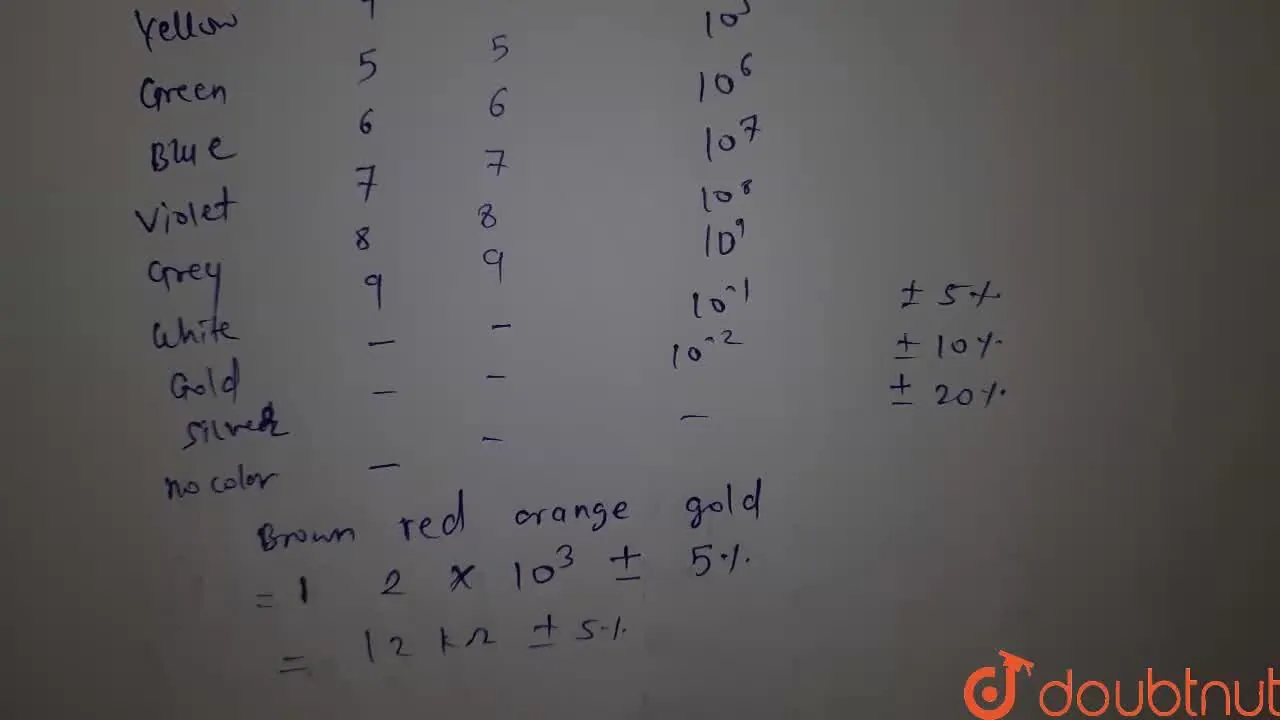 Yellow 4 10⁵
Green 5 5 10⁶
Blue 6 6 10⁷
Violet 7 7 10⁸
Grey 8 8 10⁹
White 9 9 10⁻¹ ± 5%
Gold – – 10⁻² ± 10%
Silver – – – ± 20%
no color – –
Brown red orange gold
= 1 2 × 10³ ± 5%
= 12 kΩ ± 5%
doubtnut